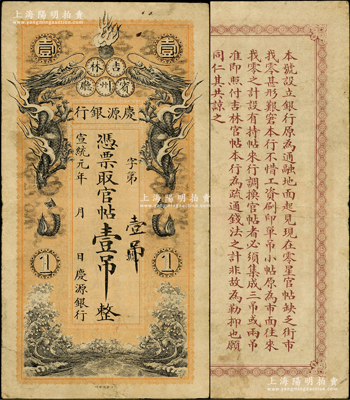 上海陽明拍賣
壹
壹
吉林
賓州廳
行銀源慶
字第
壹吊
憑票取官帖壹吊整
宣統元年 月 日慶源銀行
1
1
上海陽明拍賣
本號設立銀行原為通融地面起見現在零星官帖缺乏街市
我零甚形艱窘本行不惜工資刷印單吊小帖原為市面往來
我零之計設有持帖來行調換官帖者必須集成三吊或兩吊
准即照付吉林官帖本行為疏通錢法之計非故為勒抑也願
同仁其共諒之
上海陽明拍賣